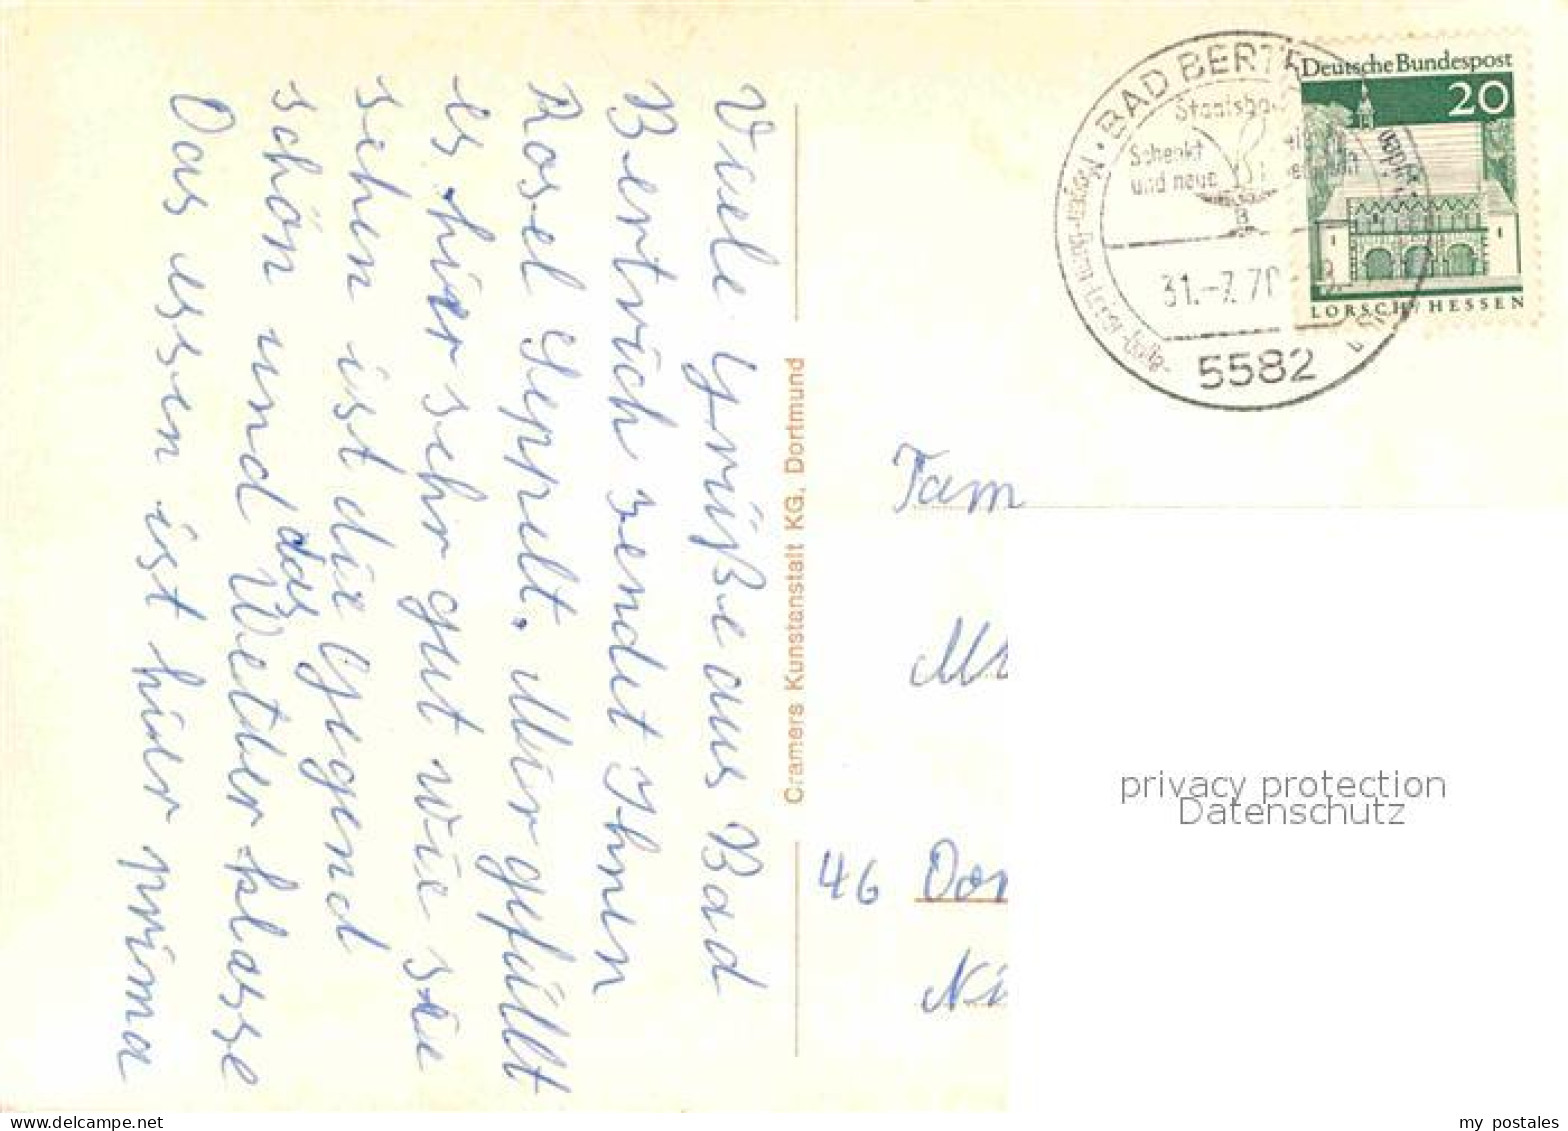 Viele Grüße aus Bad
Bertrich sendet Ihnen
Rosel Geppelt. Mir gefällt
es hier sehr gut wie sie
sehen ist die Gegend
schön und das Wetter klasse
Das essen ist hier prima
Cramers Kunstanstalt KG, Dortmund
BAD BERTR
Staatsba
Schenkt
und neue
31.-7.70
5582
Deutsche Bundespost
20
LORSCH/HESSEN
Fam
46 Dor
privacy protection
Datenschutz
my postales